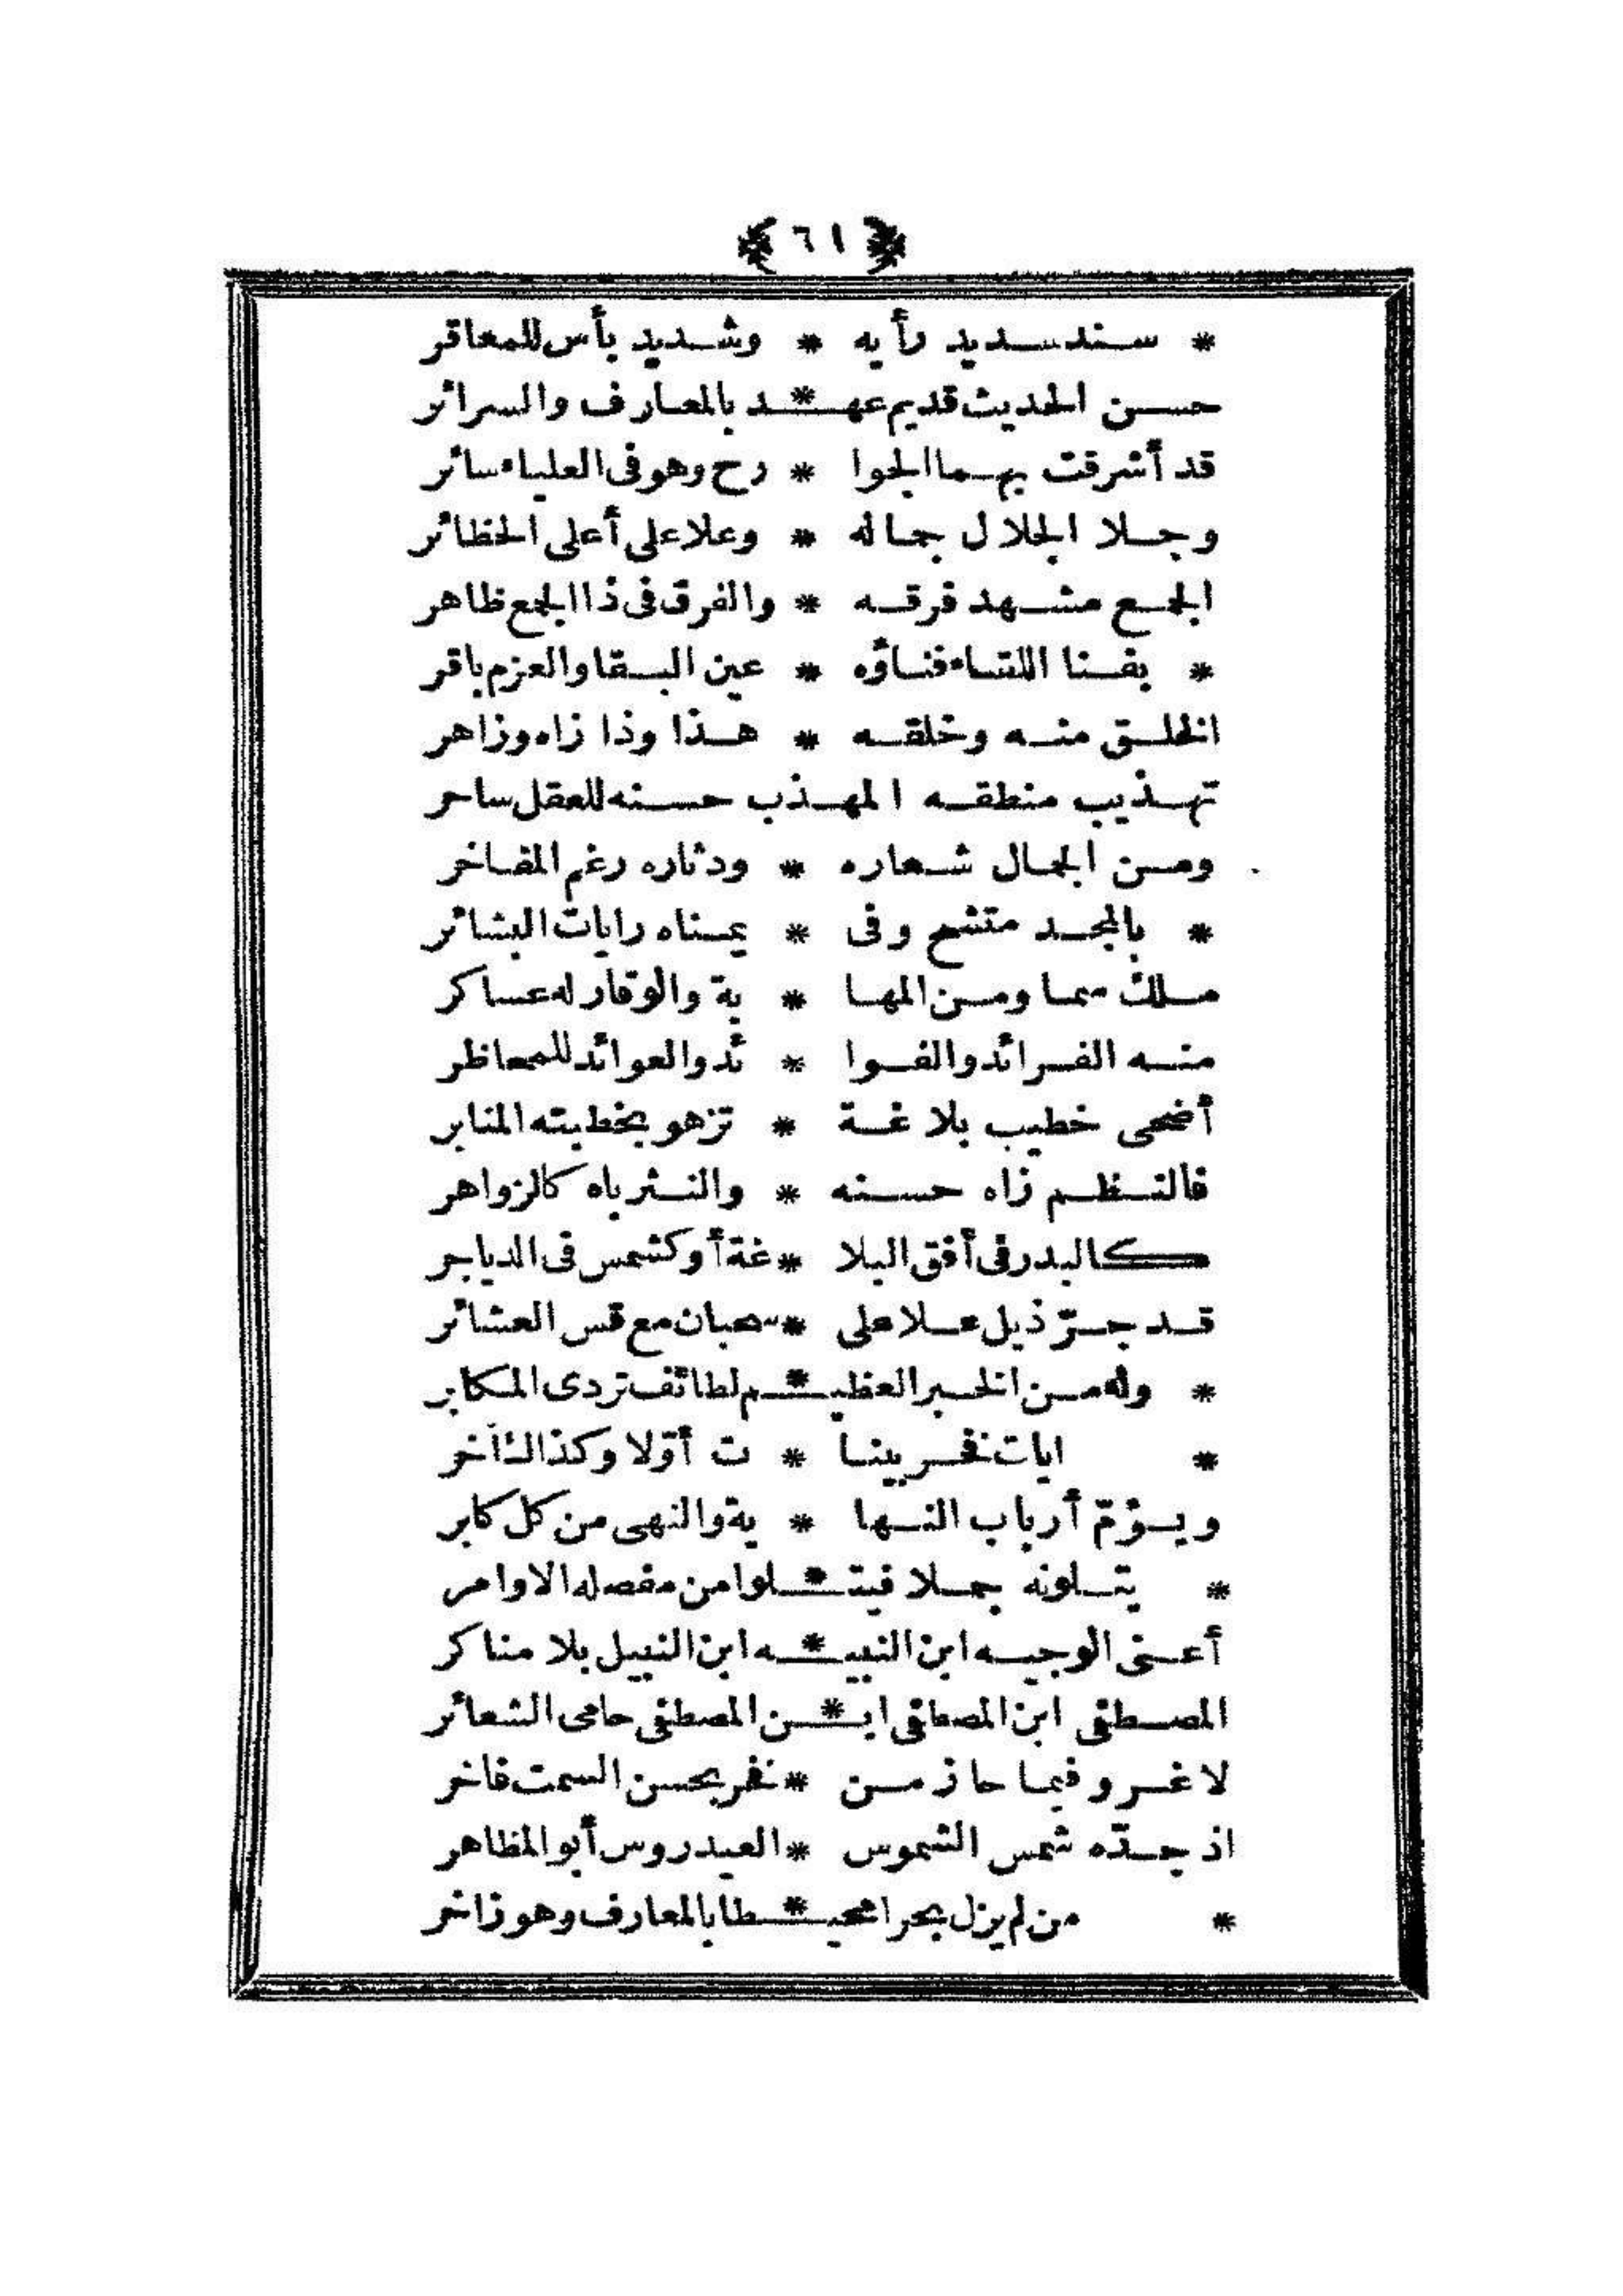 ﴿ ٦١ ﴾
* سند سديد رأيه * وشديد بأس للمعاقر
حسن الحديث قديم عهـ * ـد بالمعارف والسرائر
قد أشرقت بهما الجوا * رح وهو فى العلياء سائر
وجلا الجلال جماله * وعلا على أعلى الحظائر
الجمع مشهد فرقه * والفرق فى ذا الجمع ظاهر
* بفنا اللقاء فناؤه * عين البقا والعزم باقر
الخلق منه وخلقه * هذا وذا زاه وزاهر
تهذيب منطقه المهذب حسنه للعقل ساحر
ومن الجمال شعاره * ودثاره رغم المفاخر
* بالمجد متشح وفى * يمناه رايات البشائر
ملك سما ومن المها * بة والوقار له عساكر
منه الفرائد والفوا * ئد والعوائد للمعاظر
أضحى خطيب بلاغة * تزهو بخطبته المنابر
فالنظم زاه حسنه * والنثر باه كالزواهر
كالبدر فى أفق البلا * غة أو كشمس فى الدياجر
قد جرّ ذيل علا على * سحبان مع قس العشائر
* وله من الخبر العظيـ * ـم لطائف تردى المكابر
* ايات فخر بينا * ت أوّلا وكذاك آخر
ويؤمّ أرباب النها * ية والنهى من كل كابر
* يتلونه جملا فيتـ * ـلوا من مفصله الاوامر
أعنى الوجيه ابن النبيـ * ـه ابن النبيل بلا مناكر
المصطفى ابن المصطفى ابـ * ـن المصطفى حامى الشعائر
لا غرو فيما حاز من * فخر بحسن السمت فاخر
اذ جدّه شمس الشموس * العيدروس أبو المظاهر
* من لم يزل بحرا محيـ * ـطا بالمعارف وهو زاخر